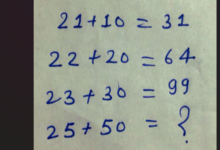 21+10 = 31
22+20 = 64
23+30 = 99
25+50 = ?